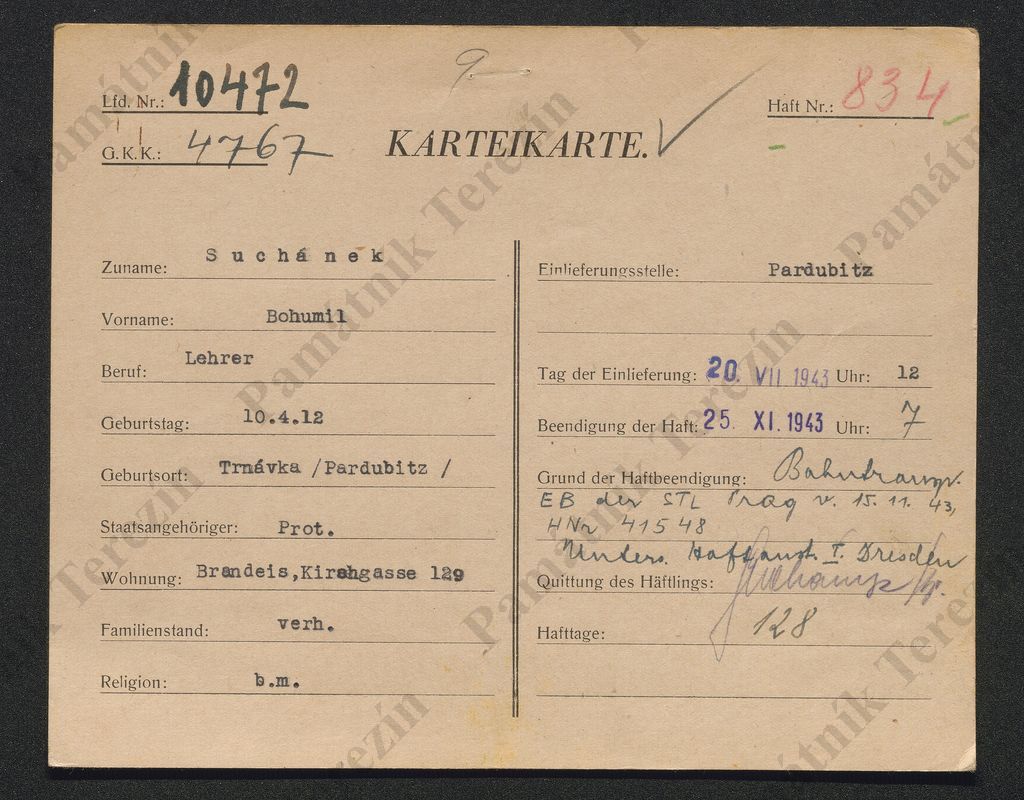 9
Lfd. Nr.: 10472
Haft Nr.: 834
G.K.K.: 4767
KARTEIKARTE.
Zuname: Suchánek
Vorname: Bohumil
Beruf: Lehrer
Geburtstag: 10.4.12
Geburtsort: Trnávka /Pardubitz /
Staatsangehöriger: Prot.
Wohnung: Brandeis,Kirchgasse 129
Familienstand: verh.
Religion: b.m.
Einlieferungsstelle: Pardubitz
Tag der Einlieferung: 20. VII. 1943 Uhr: 12
Beendigung der Haft: 25. XI. 1943 Uhr: 7
Grund der Haftbeendigung: Bahntransp.
EB der STL Prag v. 15.11.43,
HNr 41548
Unters. Haftanst. I. Dresden
Quittung des Häftlings:
Hafttage: 128
Památník Terezín